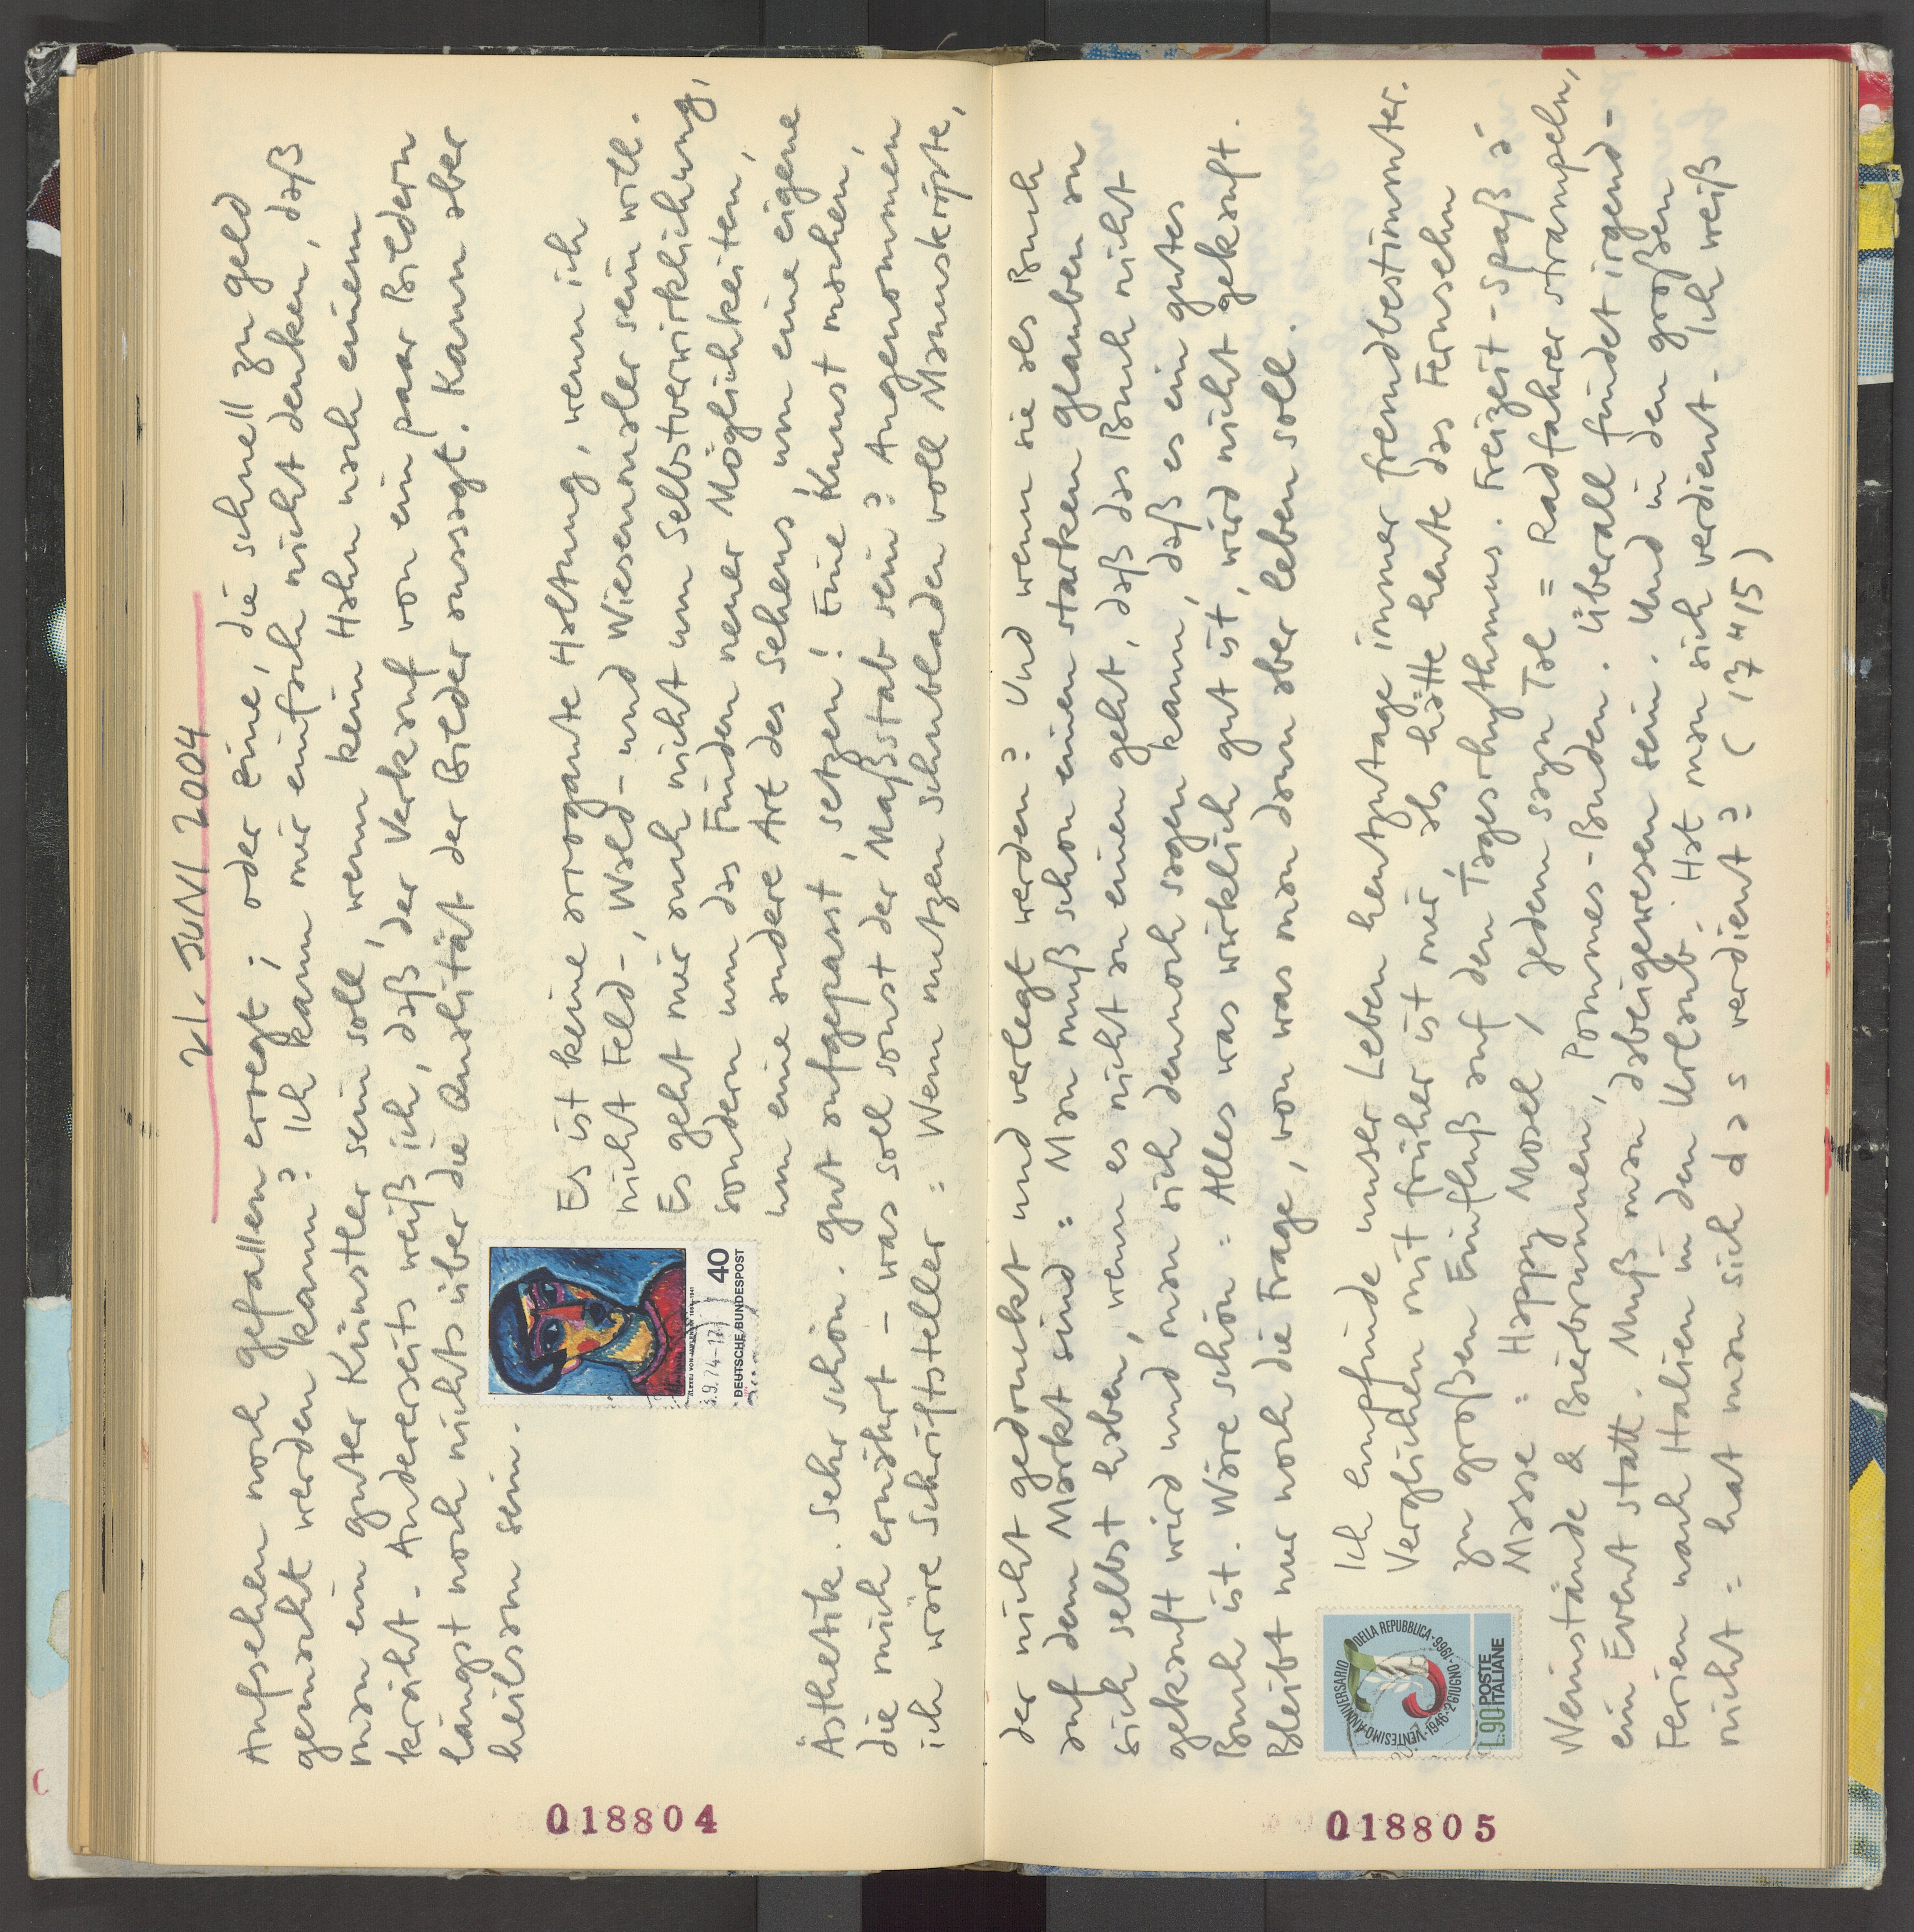 21. JUNI 2004
Aufsehen noch gefallen erregt ; oder eine, die schnell zu geld
gemacht werden kann? Ich kann mir einfach nicht denken, daß
man ein guter Künstler sein soll, wenn kein Hahn nach einem
kräht. Andererseits weiß ich, daß der Verkauf von ein paar Bildern
längst noch nichts über die Qualität der Bilder aussagt. Kann aber
heilsam sein.
ALEXEJ VON JAWLENSKY 1864-1941
3.9.74-12
40
DEUTSCHE BUNDESPOST
Es ist keine arrogante Haltung, wenn ich
nicht Feld-, Wald- und Wiesenmaler sein will.
Es geht mir auch nicht um Selbstverwirklichung,
sondern um das Finden neuer Möglichkeiten,
um eine andere Art des Sehens, um eine eigene
Ästhetik. Sehr schön. gut aufgepasst, setzen! Eine Kunst machen,
die mich ernährt – was soll sonst der Maßstab sein? Angenommen
ich wäre Schriftsteller: Wem nutzen Schubladen voll Manuskripte,
018804
der nicht gedruckt und verlegt werden? Und wenn sie als Buch
auf dem Markt sind: Man muß schon einen starken glauben an
sich selbst haben, wenn es nicht an einen geht, daß das Buch nicht
gekauft wird und man sich dennoch sagen kann, daß es ein gutes
Buch ist. Wäre schön: Alles was wirklich gut ist, wird nicht gekauft.
Bleibt nur noch die Frage, von was man dann aber leben soll.
VENTESIMO ANNIVERSARIO DELLA REPUBBLICA · 1946 · 2 GIUGNO · 1966
L.90 POSTE
ITALIANE
Ich empfinde unser Leben heutzutage immer fremdbestimmter.
Verglichen mit früher ist mir, als hätte heute das Fernsehn
zu großen Einfluß auf den Tagesrhythmus. Freizeit-Spaß à
Masse: Happy Mosel / jedem sayn Tal = Radfahrer strampeln,
Weinstände & Bierbrunnen, Pommes-Buden. Überall findet irgend-
ein Event statt. Muß man dabeigewesen sein. Und in den großen
Ferien nach Italien in den Urlaub. Hat man sich verdient. Ich weiß
nicht: hat man sich das verdient? (17 4/5)
018805